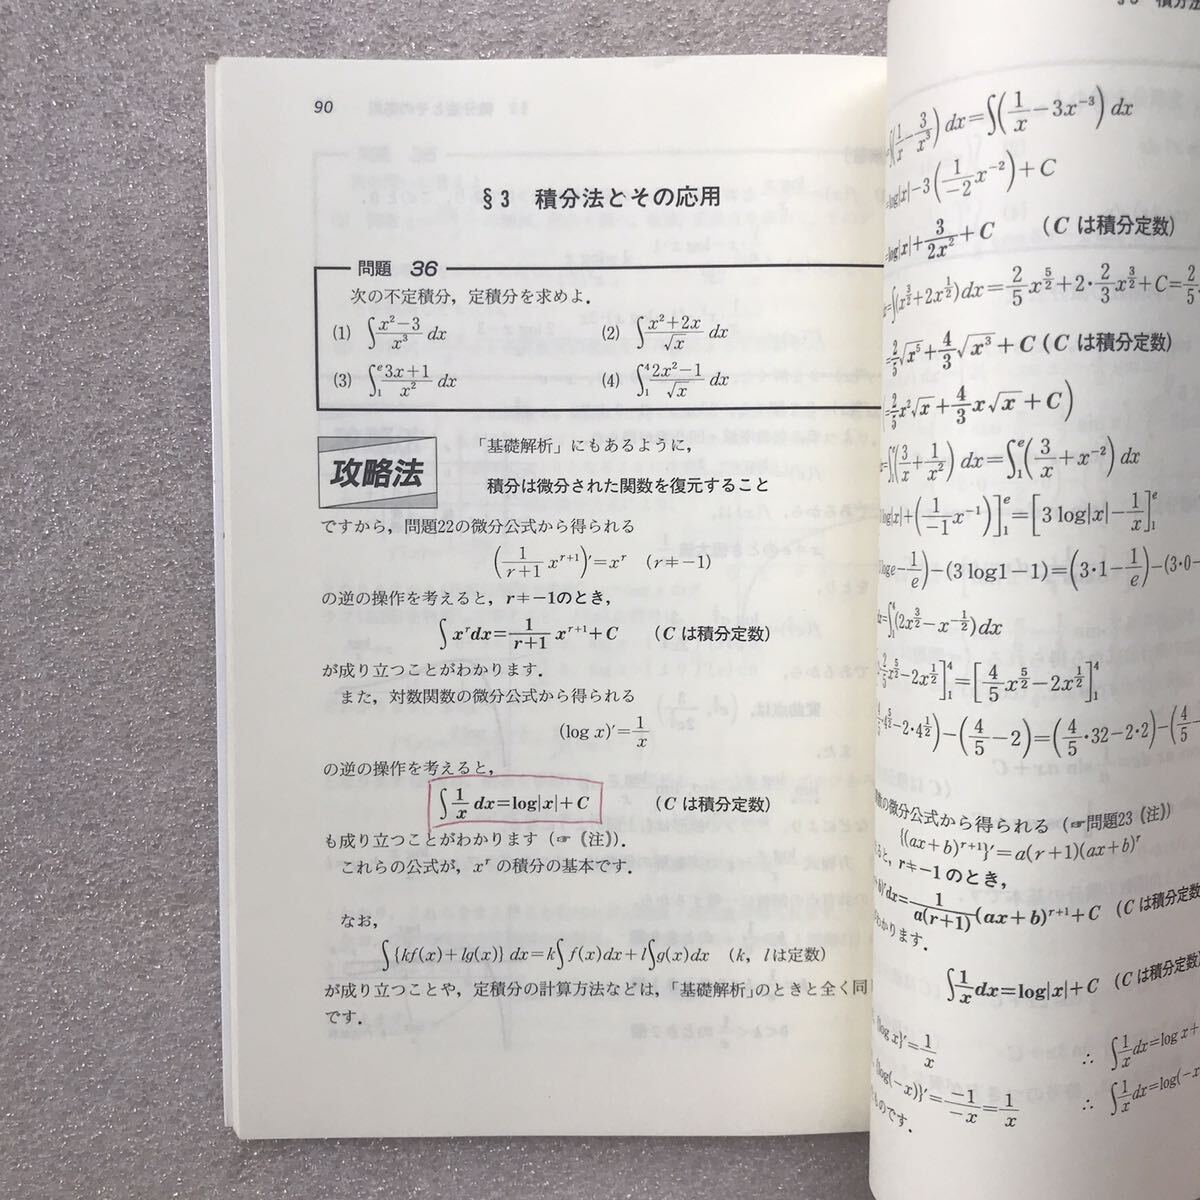 90
§3 積分法とその応用
問題 36
次の不定積分，定積分を求めよ．
(1) ∫(x²−3)/x³ dx (2) ∫(x²+2x)/√x dx
(3) ∫₁ᵉ(3x+1)/x² dx (4) ∫₁⁴(2x²−1)/√x dx
攻略法
「基礎解析」にもあるように，
積分は微分された関数を復元すること
ですから，問題22の微分公式から得られる
(1/(r+1) x^{r+1})′=x^r (r≠−1)
の逆の操作を考えると，r≠−1のとき，
∫x^r dx=1/(r+1) x^{r+1}+C (C は積分定数)
が成り立つことがわかります．
また，対数関数の微分公式から得られる
(log x)′=1/x
の逆の操作を考えると，
∫1/x dx=log|x|+C (C は積分定数)
も成り立つことがわかります（☞《注》）．
これらの公式が，x^r の積分の基本です．
なお，
∫{kf(x)+lg(x)}dx=k∫f(x)dx+l∫g(x)dx (k, lは定数)
が成り立つことや，定積分の計算方法などは，「基礎解析」のときと全く同じ
です．
§3 積分法
∫(1/x−3/x³)dx=∫(1/x−3x^{-3})dx
=log|x|−3(1/−2 x^{-2})+C
=log|x|+3/(2x²)+C (C は積分定数)
=∫(x^{3/2}+2x^{1/2})dx=2/5 x^{5/2}+2・2/3 x^{3/2}+C=2/5
=2/5√x⁵+4/3√x³+C (C は積分定数)
(=2/5 x²√x+4/3 x√x+C)
=∫₁ᵉ(3/x+1/x²)dx=∫₁ᵉ(3/x+x^{-2})dx
log|x|+(1/−1 x^{-1})]₁ᵉ=[3 log|x|−1/x]₁ᵉ
log e−1/e)−(3 log1−1)=(3・1−1/e)−(3・0−
dx=∫₁⁴(2x^{3/2}−x^{-1/2})dx
2/5 x^{5/2}−2x^{1/2}]₁⁴=[4/5 x^{5/2}−2x^{1/2}]₁⁴
4^{5/2}−2・4^{1/2})−(4/5−2)=(4/5・32−2・2)−(4/5−
の微分公式から得られる（☞問題23《注》）
{(ax+b)^{r+1}}′=a(r+1)(ax+b)^r
と，r≠−1のとき，
dx=1/(a(r+1)) (ax+b)^{r+1}+C (C は積分定数
わかります．
∫1/x dx=log|x|+C (C は積分定数)
log x}′=1/x ∴ ∫1/x dx=log x+
{log(−x)}′=−1/−x=1/x ∴ ∫1/x dx=log(−x
ものです．